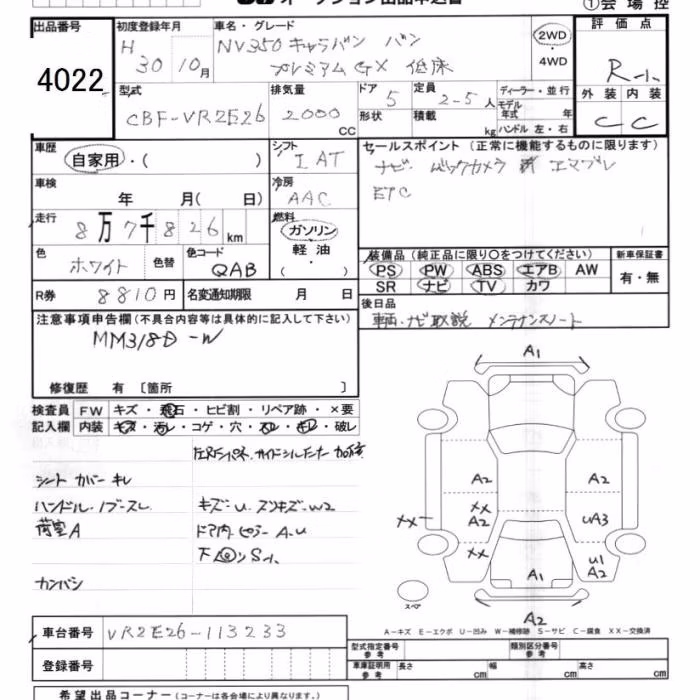 ①会場控
出品番号
4022
初度登録年月
H 30 10月
車名・グレード
NV350キャラバン バン
プレミアムGX 低床
2WD・4WD
評価点
R-1
外装 内装
C C
型式
CBF-VR2E26
排気量
2000 CC
ドア 5
定員 2-5 人
形状
積載 kg
ディーラー・並行
モデル年式 年
ハンドル 左・右
車歴
自家用・( )
シフト
IAT
セールスポイント(正常に機能するものに限ります)
ナビ バックカメラ エマブレ
ETC
車検
年 月( 日)
冷房
AAC
走行
8万7千826km
燃料
ガソリン・軽油・( )
色
ホワイト
色替
色コード
QAB
装備品(純正品に限り〇をつけてください)
PS PW ABS エアB AW
SR ナビ TV カワ
新車保証書
有・無
R券
8810円
名変通知期限 月 日
後日品
車輌・ナビ取説 メンテナンスノート
注意事項申告欄(不具合内容等は具体的に記入して下さい)
MM318D-W
修復歴 有 〔箇所 〕
検査員記入欄
FW キズ・飛石・ヒビ割・リペア跡・×要
内装 キズ・汚レ・コゲ・穴・スレ・キレ・破レ
シート カバー キレ
ハンドル・ノブスレ
荷室A
カンバシ
キズ・U スリキズ・W2
ドア内・ピラー A・U
下 S1
A1
A2 A2
XX
A2
XX
UA3
XX
U1
A2
A1
A2
スペア
A-キズ E-エクボ U-凹み W-補修跡 S-サビ C-腐食 XX-交換済
車台番号
VR2E26-113233
登録番号
型式指定番号 参考
類別区分番号 参考
車庫証明用 参考
長さ cm 幅 cm 高さ cm
希望出品コーナー(コーナーは各会場により異なります。)